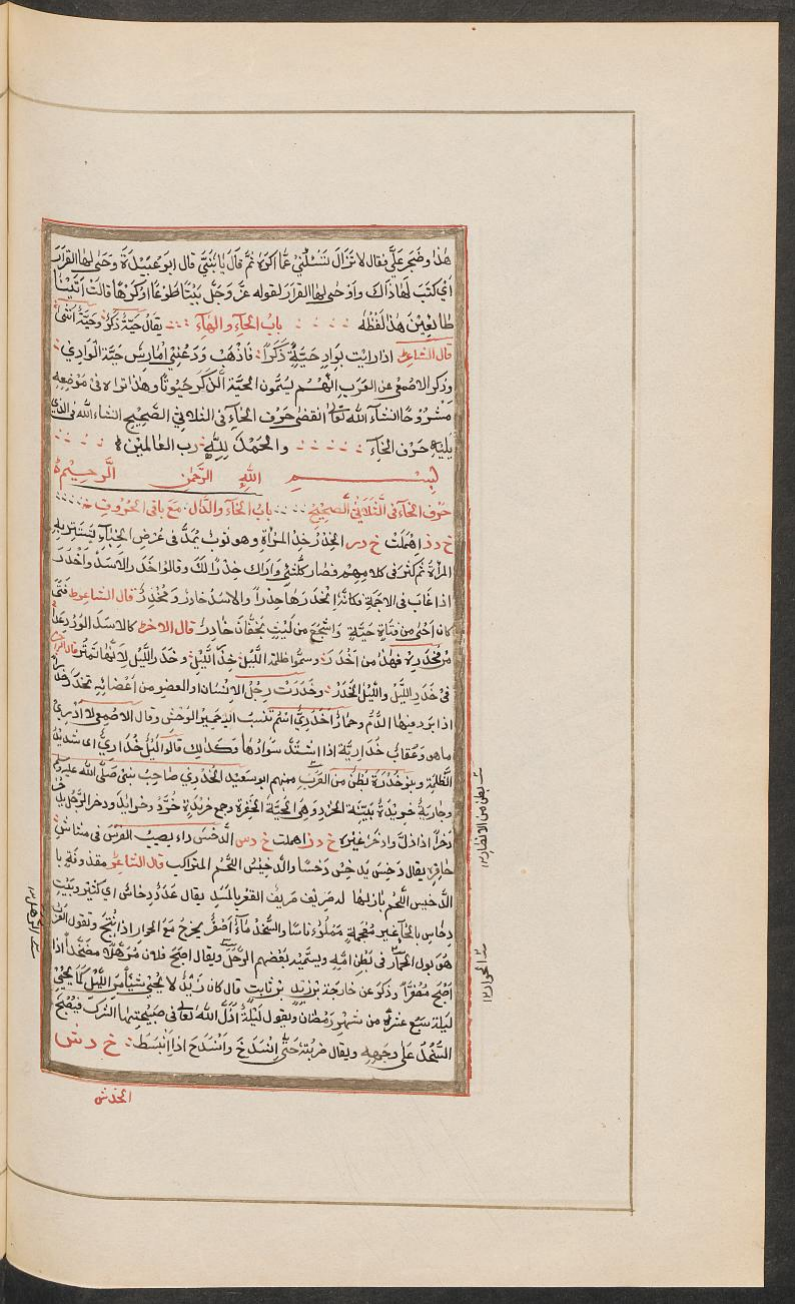 هذا وضجر علي فقال لا تزال تسئلني عما اكره ثم قال يا بني قال ابو عبيدة وحى لها القرار
اي كتب لها ذاك واوحى لها القرار لقوله عز وجل بيتا طوعا او كرها قالتا اتينا
طائعين هذا لفظه باب الحاء والهاء يقال حية ذكر وحية انثى
قال الشاعر اذا رايت بواد حية ذكرا فاذهب ودعني امارس حية الوادي
وذكر الاصمعي عن العرب انهم يسمون الحية الذكر حيوتا وهذا تراه في موضعه
مشروحا انشاء الله تعالى انقضى حرف الحاء في الثلاثي الصحيح انشاء الله في الذي
يليه حرف الخاء والحمد لله رب العالمين
بسم الله الرحمن الرحيم
حرف الخاء في الثلاثي الصحيح باب الخاء والدال مع باقي الحروف
خ د ذ اهملت خ د ر الخدر خدر المراة وهو ثوب يمد في عرض الخباء تستتر به
المراة ثم كثر في كلامهم فصار كل شيء واراك خدرا لك وقالوا خدر الاسد واخدر
اذا غاب في الاجمة فكانها اخدرها خدرا والاسد خادر ومخدر قال الشاعر فتى
كان احيى من فتاة حيية واشجع من ليث بخفان خادر قال الاخر كالاسد الورد غدا
من مخدره فهذا من اخدر وسموا ظلمة الليل خدر الليل وخدر الليل لانها تستر قال الراجز
في خدر الليل والليل الخدر وخدرت رجل الانسان او العضو من اعضائه تخدر خدرا
اذا برد فيها الدم وحمار اخدري اسم تنسب اليه حمير الوحش وقال الاصمعي لا ادري
ما هو وعقاب خدارية اذا اشتد سوادها وكذلك قالوا ليل خداري اي شديد
الظلمة وبنو خدرة بطن من العرب منهم ابو سعيد الخدري صاحب نبي صلى الله عليه وسلم
وجارية خريدة بينة الخرد وهي الحيية الخفرة وجمع خريدة خرد وخرايد ودخر الرجل يدخر
دخرا اذا ذل وادخره غيره خ د ز اهملت خ د س الدخس داء يصيب الفرس في مشاش
حافره يقال دخس يدخس دخسا والدخيس اللحم المتراكب قال الشاعر مقذوفة با
الدخيس اللحم بازلها له صريف صريف القعو بالمسد يقال عدد دخاس اي كثير وبيت
دخاس بالخاء غير معجمة مملوء ناسا والسخد ماء اصفر يخرج مع الحوار اذا نتج وتقول العرب
هو بول الحوار في بطن امه ويسميه بعضهم الرهل ويقال اصبح فلان مرهلا مسخدا اذا
اصبح مصفرا وذكر عن خارجة بن زيد بن ثابت قال كان زيد لا يحيي شيئا من الليل كما يحيي
ليلة سبع عشرة من شهر رمضان ويقول ليلة اذل الله تعالى في صبيحتها الشرك فيصبح
السخد على وجهه ويقال ضربته حتى انسدخ وانسدح اذا انبسط خ د ش
الخدش
بطن من الانصار
الحوار
الرهل